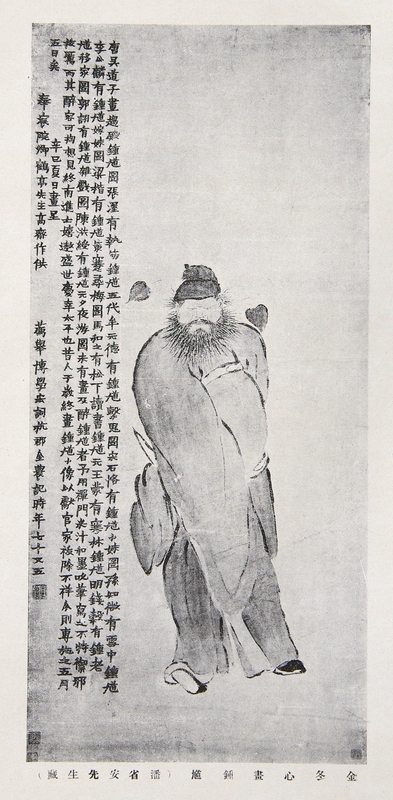 唐吳道子畫趨殿鍾馗圖張渥有執笏鍾馗五代牟元德有鍾馗擊鬼圖宋石恪有鍾馗小妹圖孫知微有雪中鍾馗
李公麟有鍾馗嫁妹圖梁楷有鍾馗策蹇尋梅圖馬和之有松下讀書鍾馗元王蒙有寒林鍾馗明錢穀有鍾老
馗移家圖郭詡有鍾馗雜戲圖陳洪綬有鍾馗元夕夜游圖未有畫及醉鍾馗者予用禪門米汁和墨吮筆寫之不特禦邪
拔厲而其醉容可掬想見終南進士嬉遨盛世慶幸太平也昔人於歲終畫鍾馗小像以獻官家祓除不祥今則專施之五月
五日矣
辛巳夏日畫呈
奉宸院卿鶴亭先生高齋作供
薦舉博學宏詞杭郡金農記時年七十又五
金冬心畫鍾馗（潘省安先生藏）